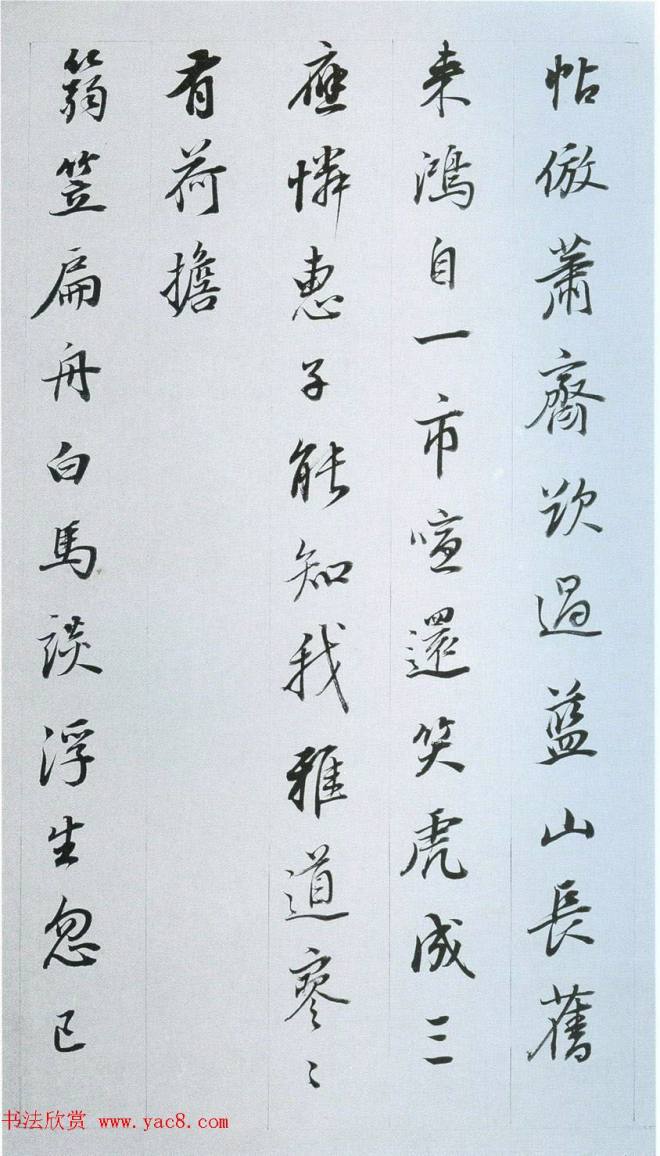 帖倣蕭齋欵過藍山長舊
來鴻自一市喧還笑虎成三
應憐惠子能知我雅道寥〻
有荷擔
篛笠扁舟白馬談浮生忽已
书法欣赏 www.yac8.com